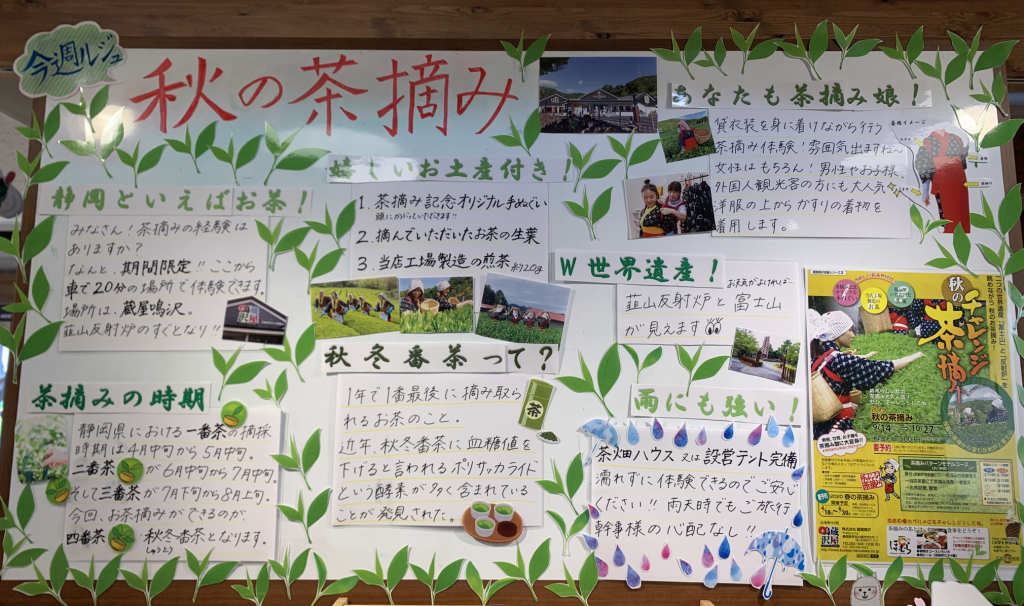 今週ルジュ
秋の茶摘み
静岡といえばお茶！
みなさん！茶摘みの経験は
ありますか？
なんと、期間限定！！ここから
車で20分の場所で体験できます。
場所は、蔵屋鳴沢。
韮山反射炉のすぐとなり！！
嬉しいお土産付き！
1. 茶摘み記念オリジナル手ぬぐい
頭にかぶっていただけます!!
2. 摘んでいただいたお茶の生葉
3. 当店工場製造の煎茶 約20g
あなたも茶摘み娘！
貸衣装を身に着けながら行う
茶摘み体験！雰囲気出ますね〜
女性はもちろん！男性やお子様、
外国人観光客の方にも大人気
洋服の上からかすりの着物を
着用します。
着用イメージ
W世界遺産！
お天気がよければ…
韮山反射炉と富士山
が見えます
茶摘みの時期
静岡県における一番茶の摘採
時期は4月中旬から5月中旬。
二番茶が6月中旬から7月中旬。
そして三番茶が7月下旬から8月上旬。
今回、お茶摘みができるのが
四番茶 秋冬番茶となります。
しゅうとう
秋冬番茶って？
1年で1番最後に摘み取ら
れるお茶のこと。
近年、秋冬番茶に血糖値を
下げると言われるポリサッカライド
という酵素が多く含まれている
ことが発見された。
茶
雨にも強い！
茶畑ハウス又は設営テント完備
濡れずに体験できるのでご安心
ください！！雨天時でもご旅行
幹事様の心配なし！！
二つの世界遺産「富士山」と「反射炉」を
眺めながら秋のお茶摘み！
秋の
チャレンジ
茶摘み
秋の茶摘み
9/14 〜 10/27
要予約
茶摘みパターンモデルコース
2020 春の茶摘み
4/18 〜 6/30
蔵屋鳴沢